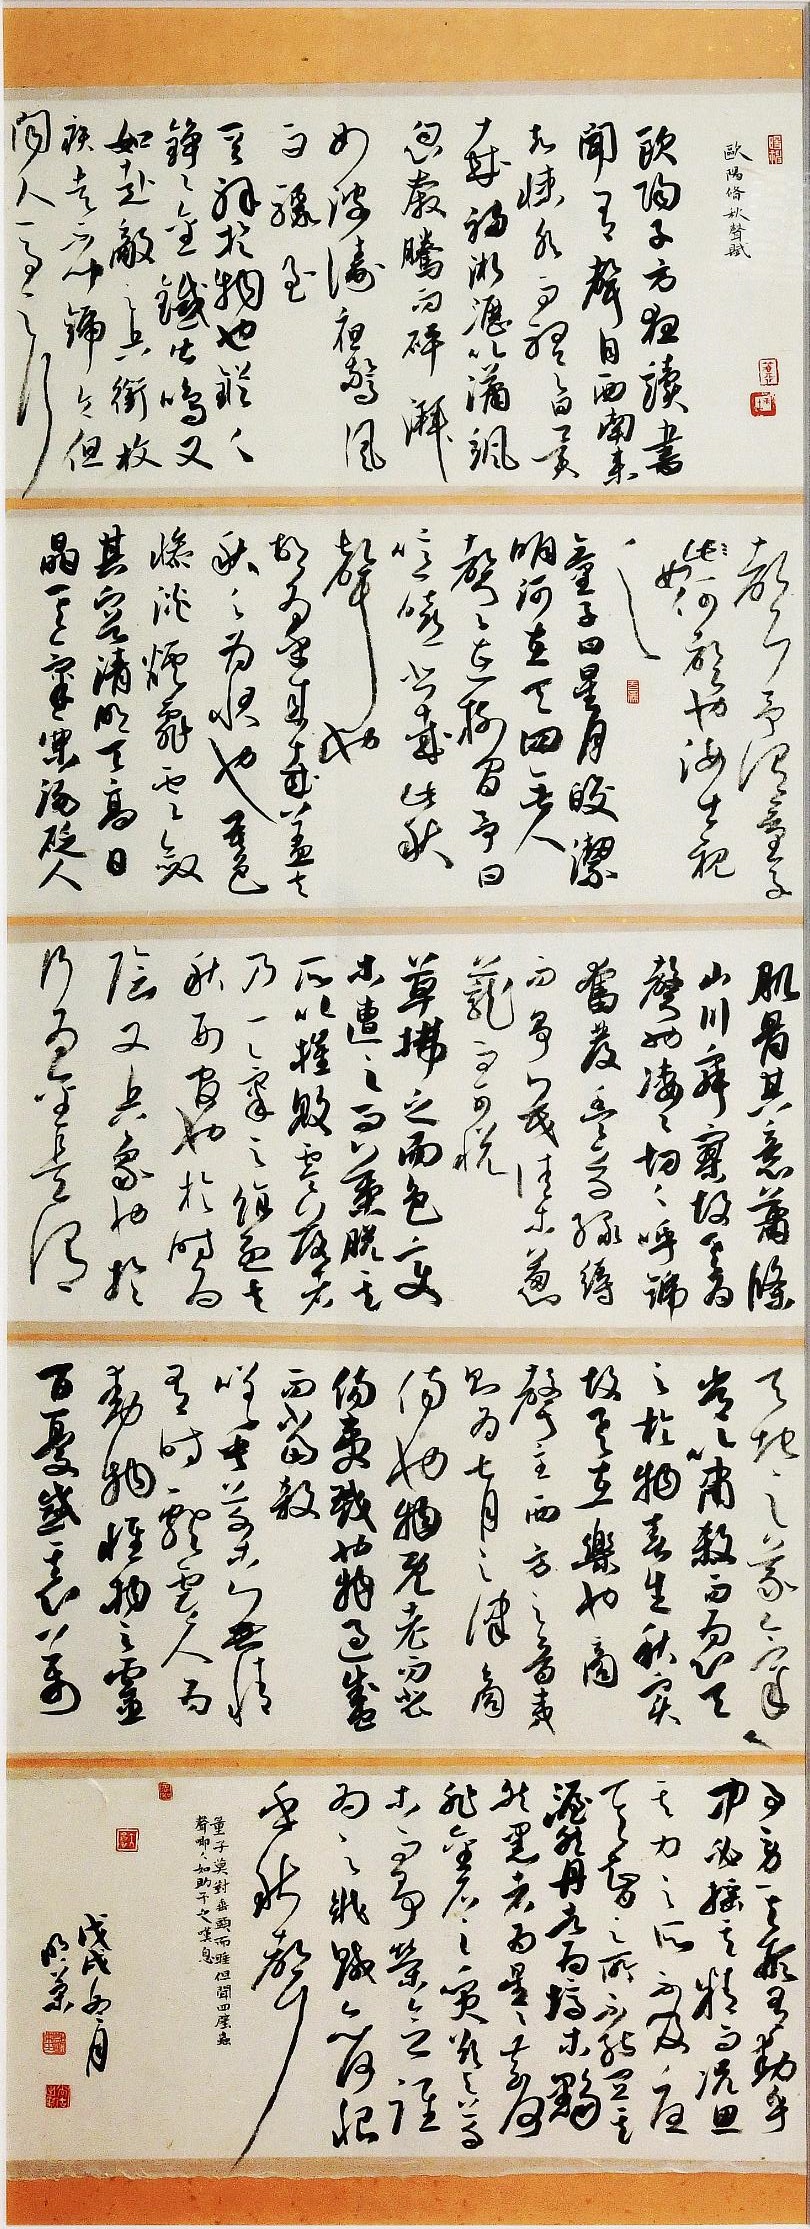 歐陽脩秋聲賦
歐陽子方夜讀書
聞有聲自西南來
者悚然而聽之曰異
哉初淅瀝以蕭颯
忽奔騰而砰湃
如波濤夜驚風
雨驟至
其觸於物也鏦〻
錚〻金鐵皆鳴又
如赴敵之兵銜枚
疾走不聞號令但
聞人馬之行
聲予謂童子
此何聲也汝出視
之
童子曰星月皎潔
明河在天四無人
聲〻在樹間予曰
噫嘻悲哉此秋
聲也
胡為乎來哉蓋夫
秋之為狀也其色
慘淡煙霏雲斂
其容清明天高日
晶其氣栗冽砭人
肌骨其意蕭條
山川寂寥故其為
聲也凄〻切〻呼號
奮發豐草綠縟
而爭茂佳木蔥
蘢而可悅
草拂之而色變
木遭之而葉脫其
所以摧敗零落者
乃一氣之餘烈夫
秋刑官也於時為
陰又兵象也於
行為金是謂
天地之義氣
常以肅殺而為心天
之於物春生秋實
故其在樂也商
聲主西方之音夷
則為七月之律商
傷也物既老而悲
傷夷戮也物過盛
而當殺
嗟乎草木無情
有時飄零人為
動物惟物之靈
百憂感其心萬
事勞其形有動乎
中必搖其精而況思
其力之所不及憂
其智之所不能宜其
渥然丹者為槁木黟
然黑者為星〻奈何
非金石之質欲與草
木而爭榮念誰
為之戕賊亦何恨
乎秋聲
童子莫對垂頭而睡但聞四壁蟲
聲唧〻如助予之嘆息
戊戌 月